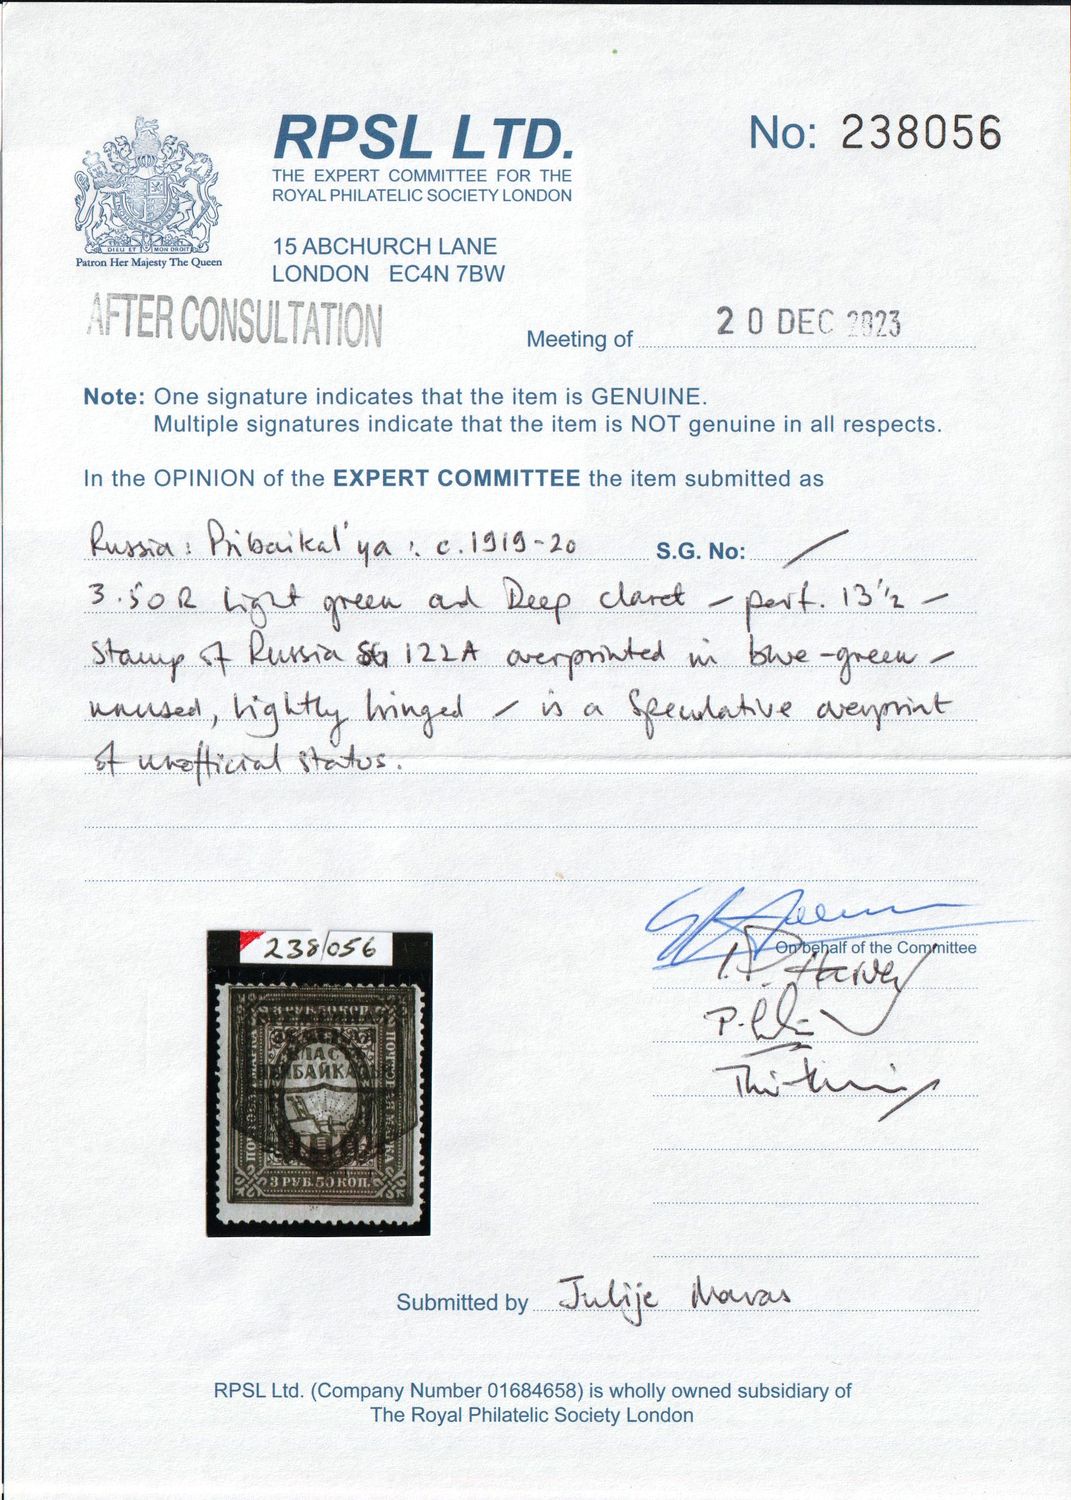 RPSL LTD.
THE EXPERT COMMITTEE FOR THE
ROYAL PHILATELIC SOCIETY LONDON
15 ABCHURCH LANE
LONDON EC4N 7BW
No: 238056
DIEU ET MON DROIT
Patron Her Majesty The Queen
AFTER CONSULTATION
Meeting of 20 DEC 2023
Note: One signature indicates that the item is GENUINE.
Multiple signatures indicate that the item is NOT genuine in all respects.
In the OPINION of the EXPERT COMMITTEE the item submitted as
Russia: Pribaikal'ya: c.1919-20 S.G. No: /
3.50R Light green and Deep claret - perf. 13½ -
Stamp of Russia SG 122A overprinted in blue-green -
unused, lightly hinged - is a speculative overprint
of unofficial status.
On behalf of the Committee
Harvey
238/056
3 РУБ. 50 КОП.
ВЛАСТЬ
3 РУБ. 50 КОП.
Submitted by Julije Maras
RPSL Ltd. (Company Number 01684658) is wholly owned subsidiary of
The Royal Philatelic Society London